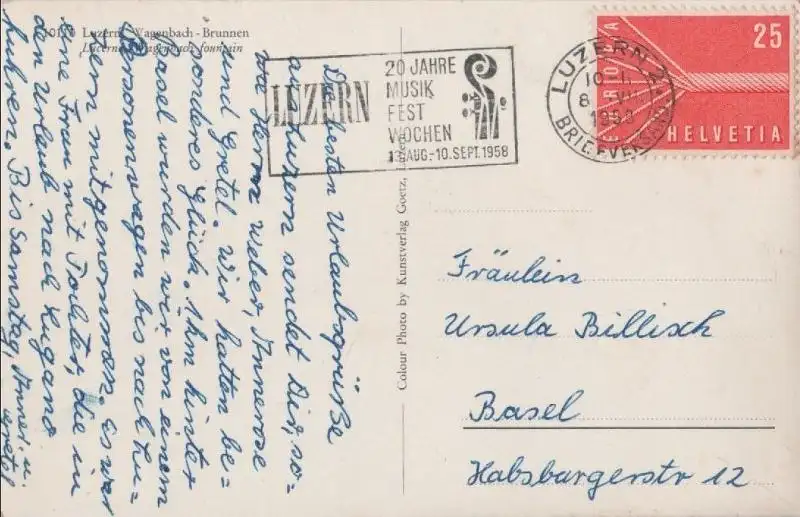 10110 Luzern, Wagenbach-Brunnen
Lucerne, Wagenbach fountain
Die besten Urlaubsgrüße
aus Luzern sendet Dir, so-
wie Herrn Weber, Annerose
und Gretel. Wir hatten be-
sonderes Glück. Ahm hinter
Basel wurden wir von einem
Personenwagen bis nach Lu-
zern mitgenommen. Es war
eine Frau mit Tochter, die in
den Urlaub nach Lugano
fuhren. Bis Samstag, Anner. u.
Gretel
Colour Photo by Kunstverlag Goetz, Luzern
LUZERN
20 JAHRE
MUSIK
FEST
WOCHEN
13. AUG.-10. SEPT. 1958
LUZERN 2
10-1
8. VII
1958
BRIEFVERSAND
EUROPA
25
HELVETIA
Fräulein
Ursula Billisch
Basel
Habsburgerstr 12